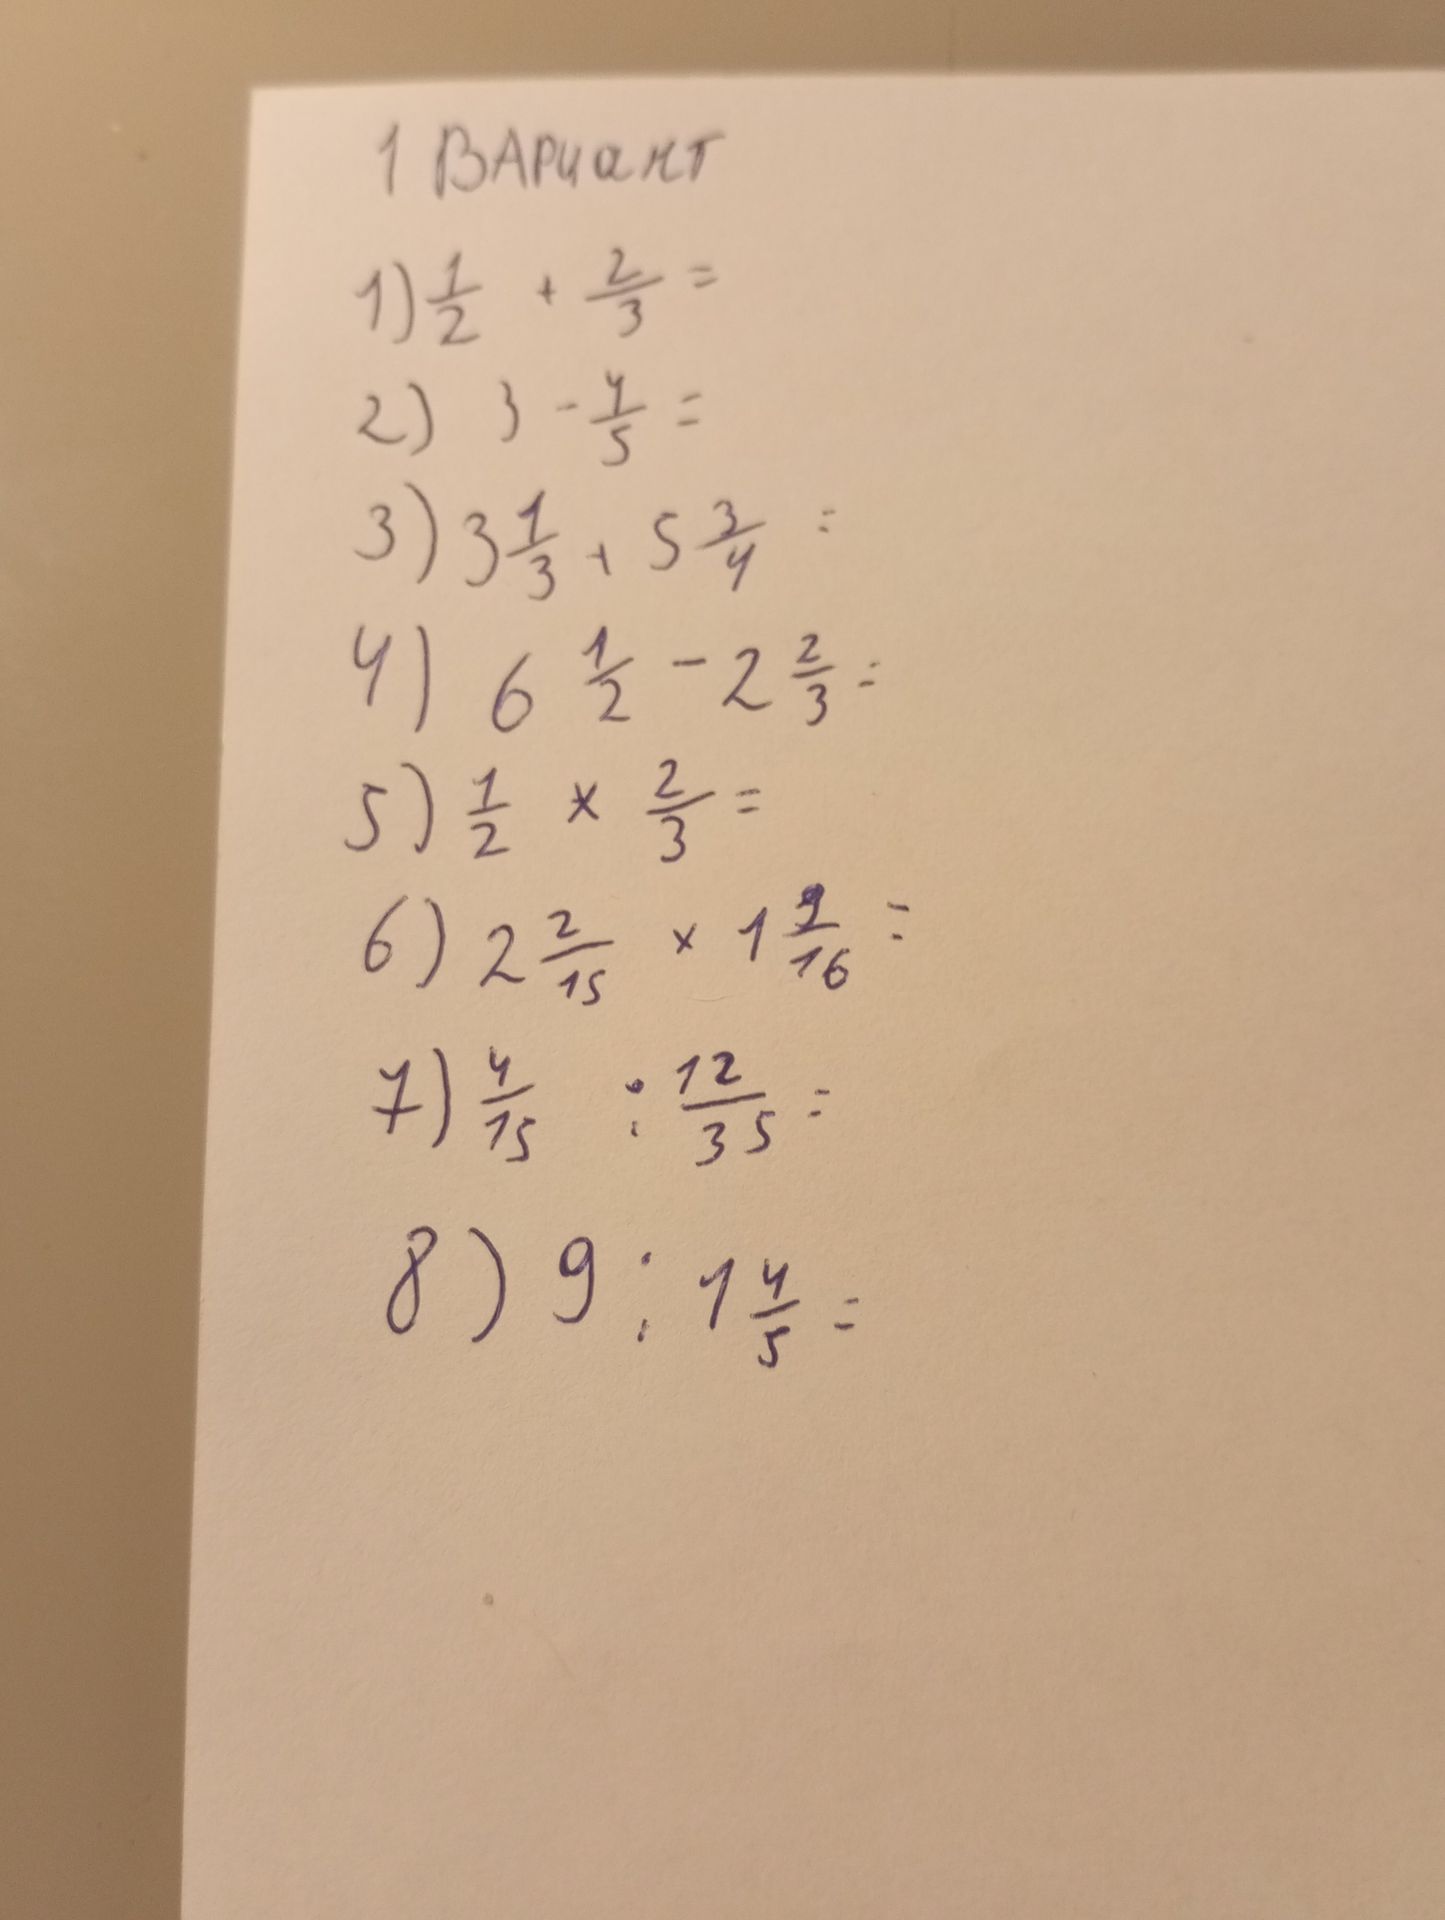 1 ВАРиант
1) 1/2 + 2/3 =
2) 3 - 4/5 =
3) 3 1/3 + 5 3/4 =
4) 6 1/2 - 2 2/3 =
5) 1/2 × 2/3 =
6) 2 2/15 × 1 9/16 =
7) 4/15 : 12/35 =
8) 9 : 1 4/5 =